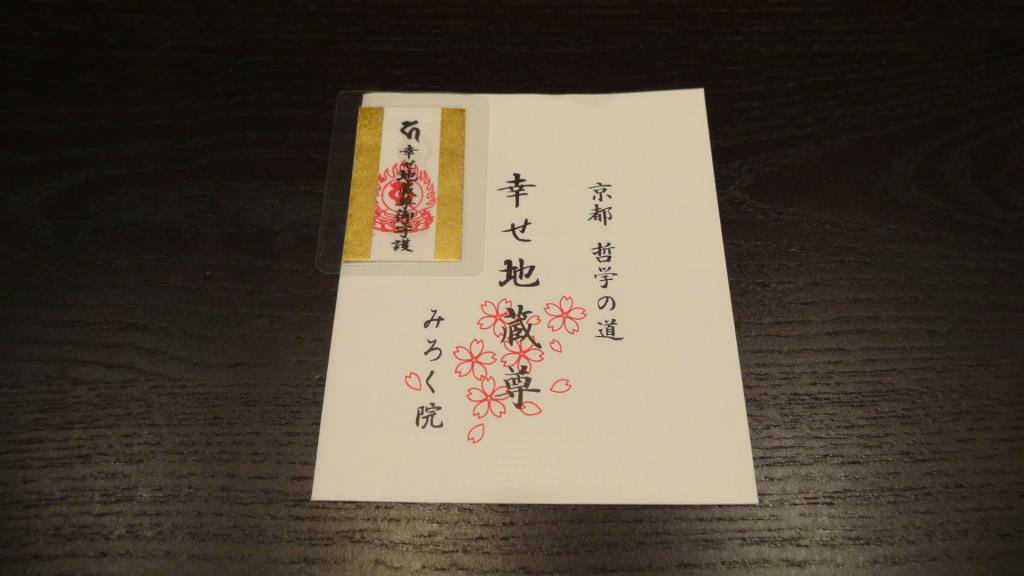 京都 哲学の道
幸せ地蔵尊
みろく院
幸せ地蔵尊御守護